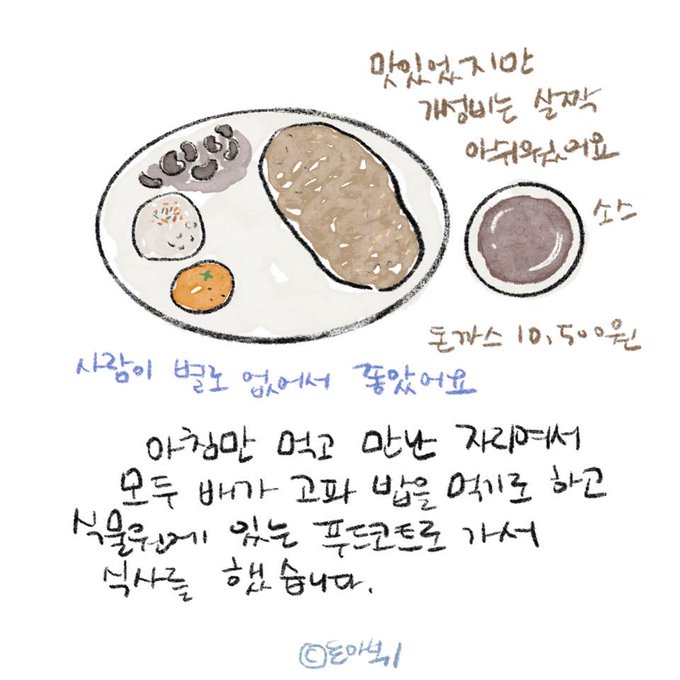 맛있었지만
개성비는 살짝
아쉬웠어요
소스
돈까스 10,500원
사람이 별로 없어서 좋았어요
아침만 먹고 만난 자리여서
모두 배가 고파 밥을 먹기로 하고
식물원에 있는 푸드코트로 가서
식사를 했습니다.